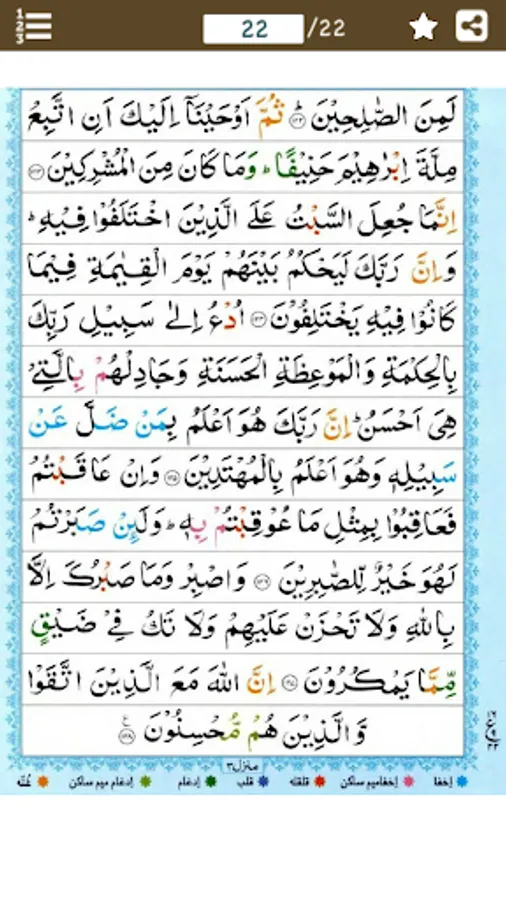 22 /22
لَمِنَ الصّٰلِحِيْنَ ؕ﴿۱۲۲﴾ ثُمَّ اَوْحَيْنَاۤ اِلَيْكَ اَنِ اتَّبِعْ
مِلَّةَ اِبْرٰهِيْمَ حَنِيْفًا ؕ وَمَا كَانَ مِنَ الْمُشْرِكِيْنَ ﴿۱۲۳﴾
اِنَّمَا جُعِلَ السَّبْتُ عَلَى الَّذِيْنَ اخْتَلَفُوْا فِيْهِ ؕ
وَاِنَّ رَبَّكَ لَيَحْكُمُ بَيْنَهُمْ يَوْمَ الْقِيٰمَةِ فِيْمَا
كَانُوْا فِيْهِ يَخْتَلِفُوْنَ ﴿۱۲۴﴾ اُدْعُ اِلٰى سَبِيْلِ رَبِّكَ
بِالْحِكْمَةِ وَالْمَوْعِظَةِ الْحَسَنَةِ وَجَادِلْهُمْ بِالَّتِيْ
هِيَ اَحْسَنُ ؕ اِنَّ رَبَّكَ هُوَ اَعْلَمُ بِمَنْ ضَلَّ عَنْ
سَبِيْلِهٖ وَهُوَ اَعْلَمُ بِالْمُهْتَدِيْنَ ﴿۱۲۵﴾ وَاِنْ عَاقَبْتُمْ
فَعَاقِبُوْا بِمِثْلِ مَا عُوْقِبْتُمْ بِهٖ ؕ وَلَئِنْ صَبَرْتُمْ
لَهُوَ خَيْرٌ لِّلصّٰبِرِيْنَ ﴿۱۲۶﴾ وَاصْبِرْ وَمَا صَبْرُكَ اِلَّا
بِاللّٰهِ وَلَا تَحْزَنْ عَلَيْهِمْ وَلَا تَكُ فِيْ ضَيْقٍ
مِّمَّا يَمْكُرُوْنَ ﴿۱۲۷﴾ اِنَّ اللّٰهَ مَعَ الَّذِيْنَ اتَّقَوْا
وَّالَّذِيْنَ هُمْ مُّحْسِنُوْنَ ﴿۱۲۸﴾
منزل۳
إخفا إخفامیم ساکن قلقله قلب إدغام إدغام میم ساکن غُنّه